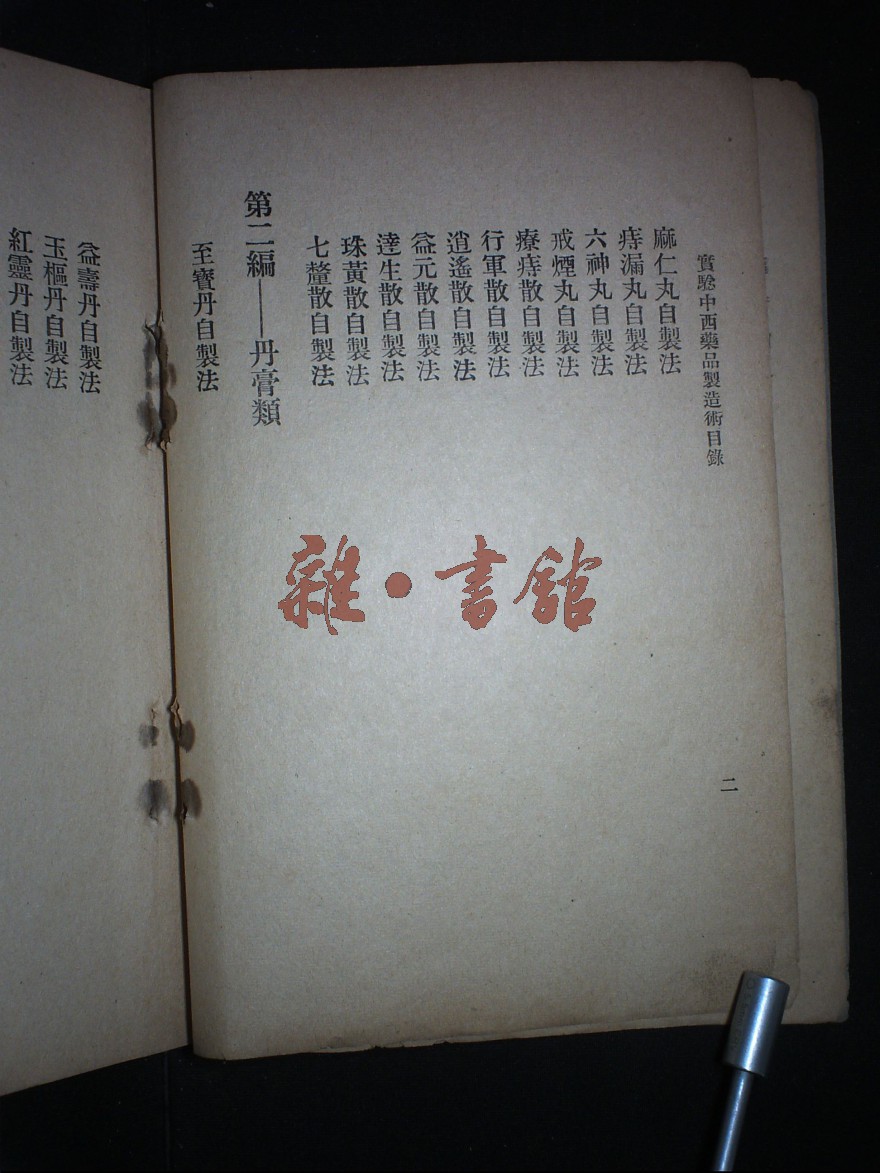 實驗中西藥品製造術目錄
二
麻仁丸自製法
痔漏丸自製法
六神丸自製法
戒煙丸自製法
療痔散自製法
行軍散自製法
逍遙散自製法
益元散自製法
達生散自製法
珠黃散自製法
七釐散自製法
第二編——丹膏類
至寶丹自製法
益壽丹自製法
玉樞丹自製法
紅靈丹自製法
雜·書館